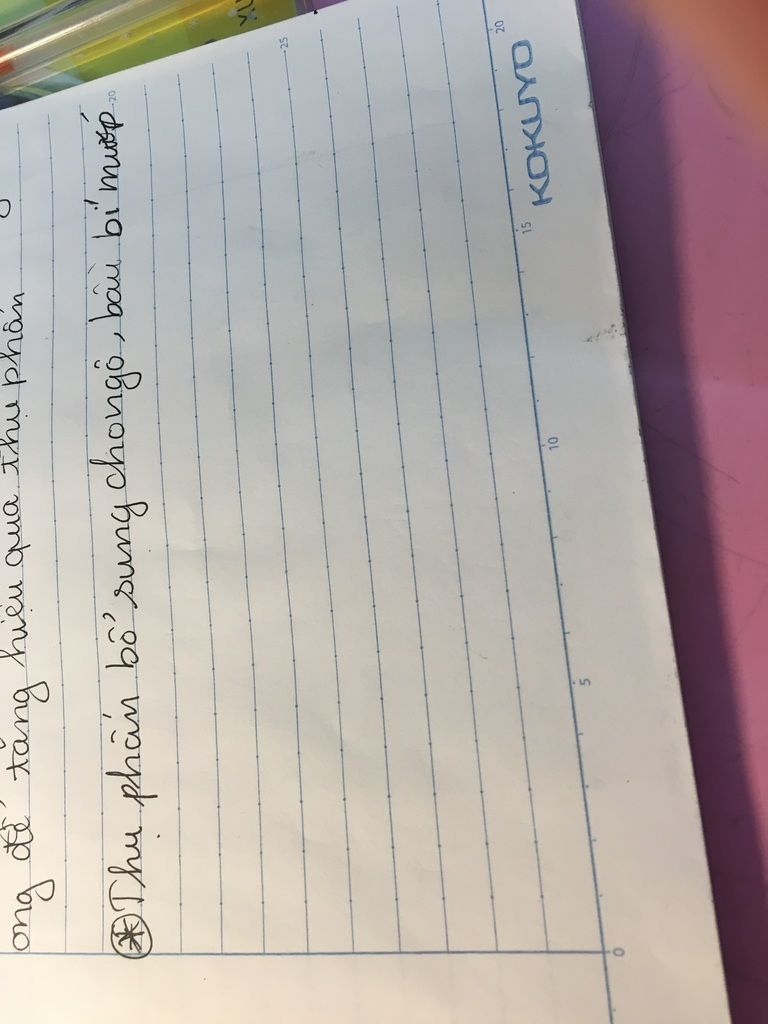 ong để tăng hiệu quả thụ phấn
⊛ Thụ phấn bổ sung cho ngô, bầu bí mướp
20
25
KOKUYO
0
5
10
15
20